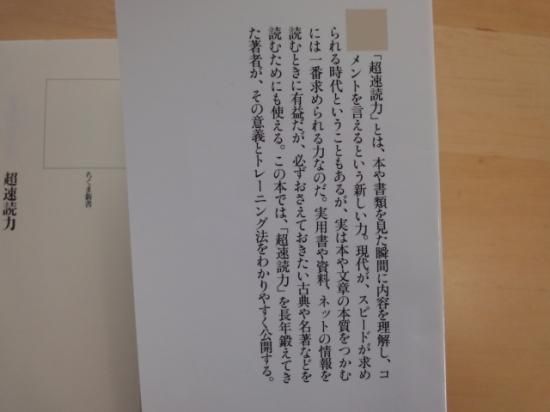 「超速読力」とは、本や書類を見た瞬間に内容を理解し、コ
メントを言えるという新しい力。現代が、スピードが求め
られる時代ということもあるが、実は本や文章の本質をつかむ
には一番求められる力なのだ。実用書や資料、ネットの情報を
読むときに有益だが、必ずおさえておきたい古典や名著などを
読むためにも使える。この本では、「超速読力」を長年鍛えてき
た著者が、その意義とトレーニング法をわかりやすく公開する。
ちくま新書
超速読力